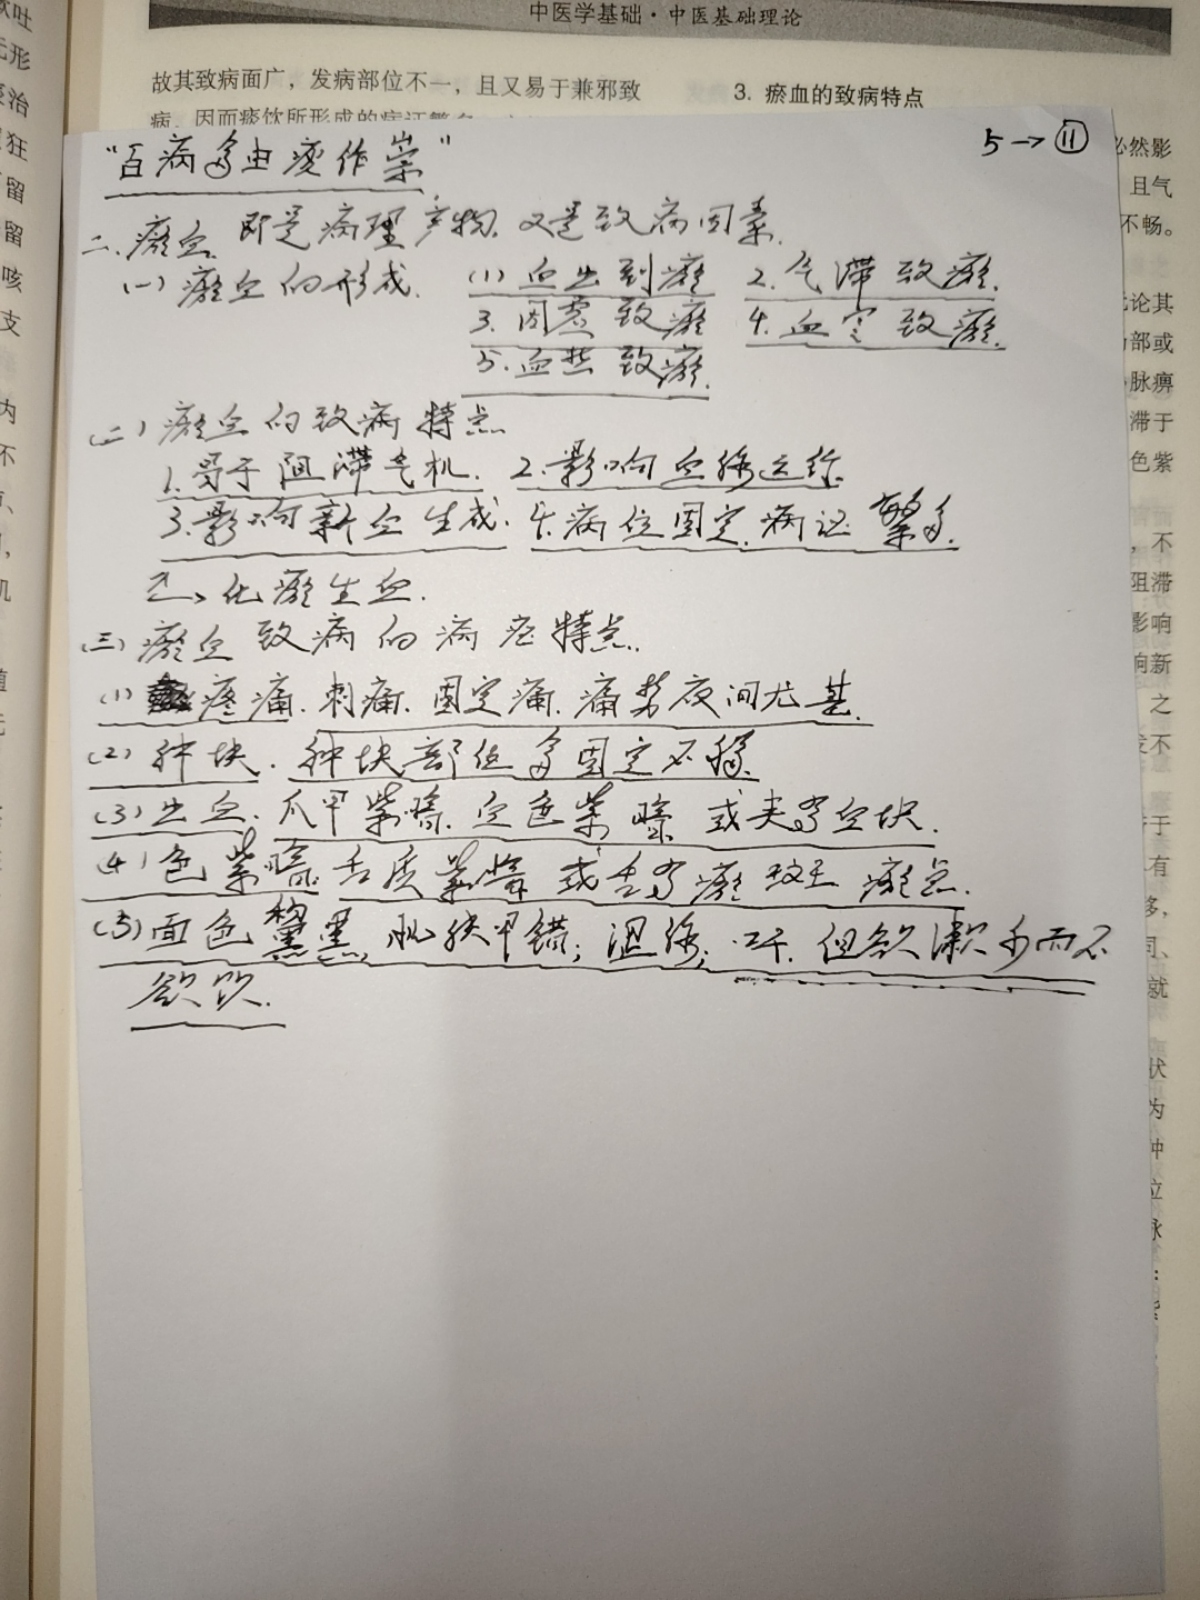 中医学基础·中医基础理论
故其致病面广，发病部位不一，且又易于兼邪致
病，因而痰饮所形成的病证繁多
3. 瘀血的致病特点
5→⑪
"百病多由痰作祟"
二、瘀血 即是病理产物，又是致病因素.
(一) 瘀血的形成. (1) 血出到瘀 2. 气滞致瘀.
3. 因虚致瘀 4. 血寒致瘀.
5. 血热致瘀.
(二) 瘀血的致病特点
1. 易于阻滞气机. 2. 影响血脉运行.
3. 影响新血生成. 4. 病位固定, 病证繁多.
乙、化瘀生血.
(三) 瘀血致病的病症特点.
(1) 疼痛. 刺痛. 固定痛. 痛势夜间尤甚.
(2) 肿块. 肿块部位多固定不移.
(3) 出血. 爪甲紫暗. 血色紫暗 或夹有血块.
(4) 色紫暗. 舌质紫暗 或舌有瘀斑 瘀点.
(5) 面色黧黑, 肌肤甲错; 涩脉; 口干. 但欲漱水而不
欲饮.
必然影
且气
不畅。
无论其
部或
脉痹
滞于
色紫
，不
阻滞
影响
响新
之
不
于
有
移，
同、
就
状
为
肿
位
脉
欬吐
形
治
狂
留
留
咳
支
内
不
机